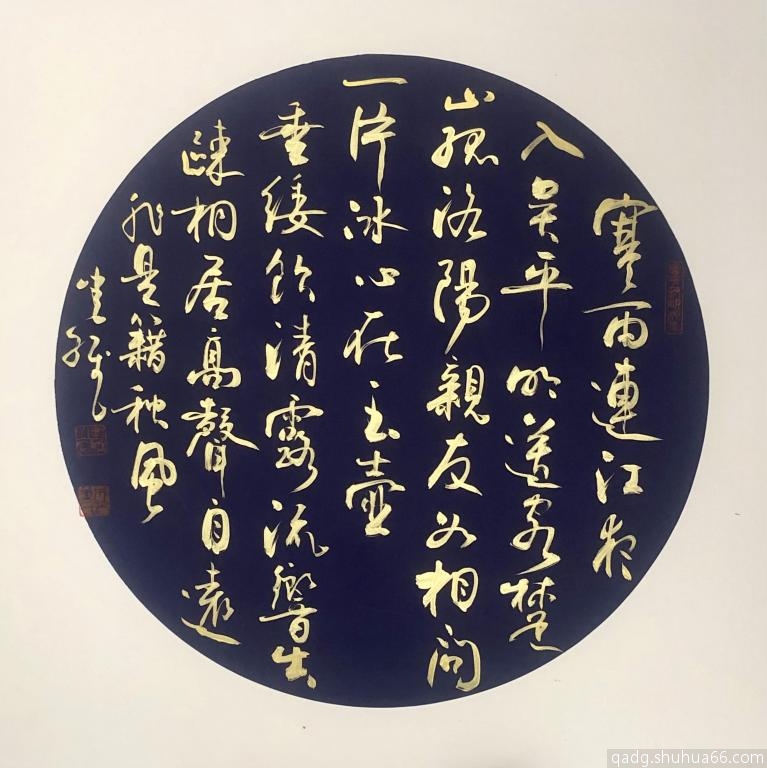 寒雨連江夜
入吴平明送客楚
山孤洛陽親友如相問
一片冰心在玉壺
垂緌飲清露流響出
疎桐居高聲自遠
非是籍秋風
qadg.shuhua66.com